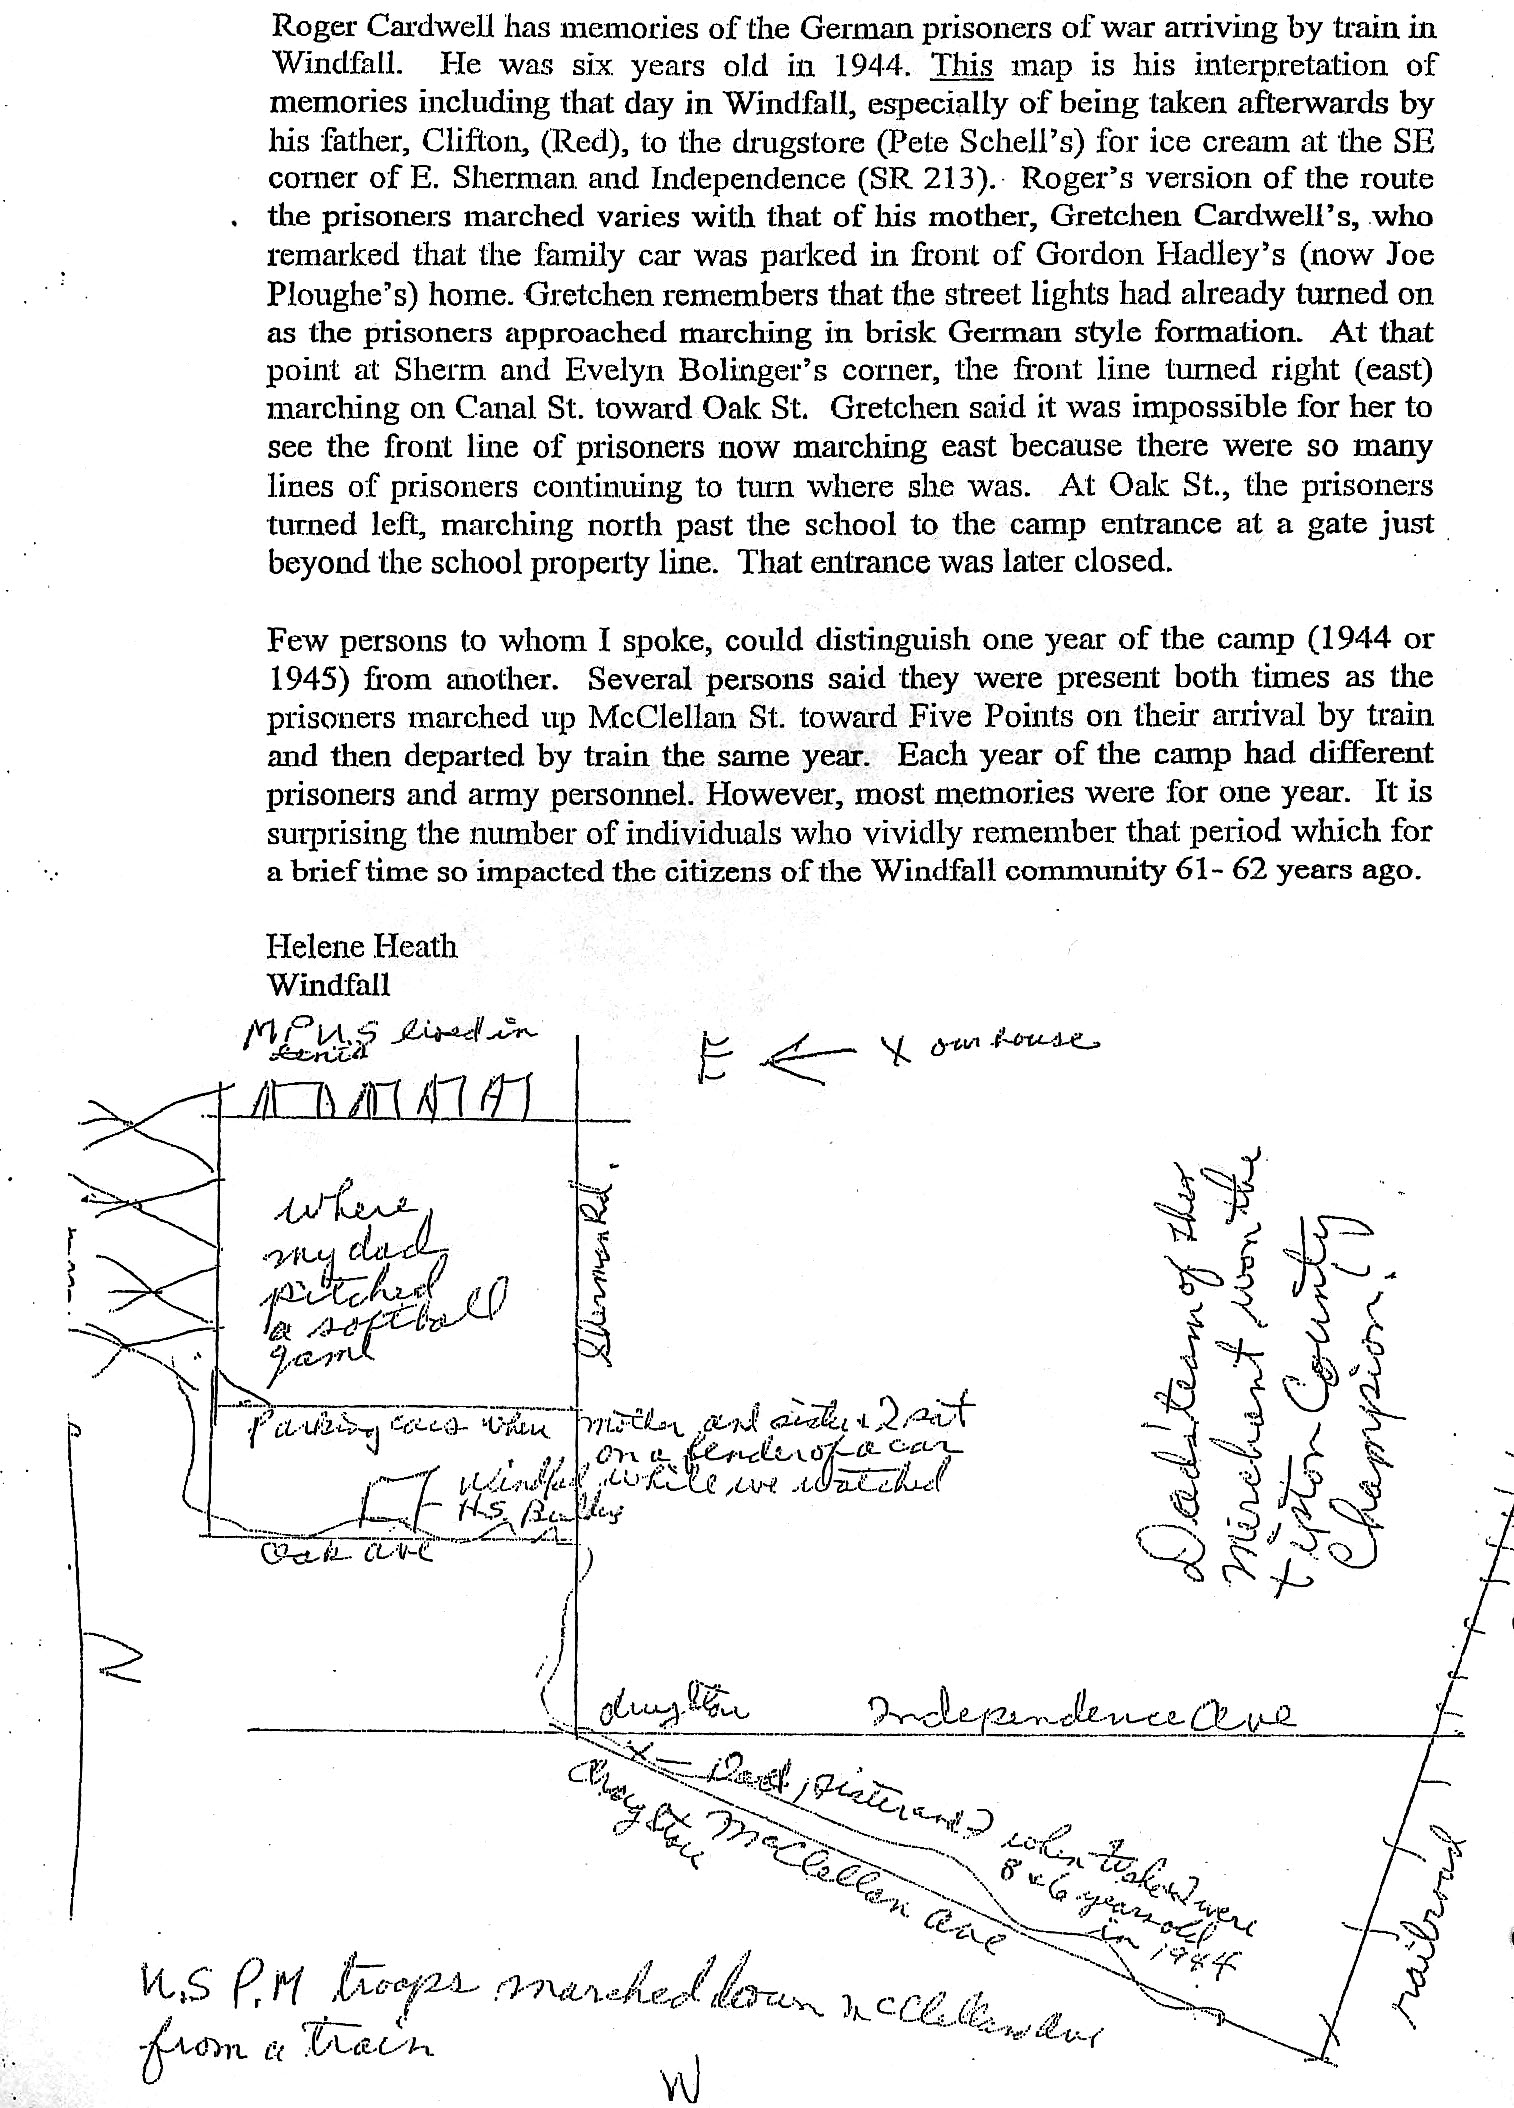 Roger Cardwell has memories of the German prisoners of war arriving by train in
Windfall. He was six years old in 1944. This map is his interpretation of
memories including that day in Windfall, especially of being taken afterwards by
his father, Clifton, (Red), to the drugstore (Pete Schell's) for ice cream at the SE
corner of E. Sherman and Independence (SR 213). Roger's version of the route
the prisoners marched varies with that of his mother, Gretchen Cardwell's, who
remarked that the family car was parked in front of Gordon Hadley's (now Joe
Ploughe's) home. Gretchen remembers that the street lights had already turned on
as the prisoners approached marching in brisk German style formation. At that
point at Sherm and Evelyn Bolinger's corner, the front line turned right (east)
marching on Canal St. toward Oak St. Gretchen said it was impossible for her to
see the front line of prisoners now marching east because there were so many
lines of prisoners continuing to turn where she was. At Oak St., the prisoners
turned left, marching north past the school to the camp entrance at a gate just
beyond the school property line. That entrance was later closed.
Few persons to whom I spoke, could distinguish one year of the camp (1944 or
1945) from another. Several persons said they were present both times as the
prisoners marched up McClellan St. toward Five Points on their arrival by train
and then departed by train the same year. Each year of the camp had different
prisoners and army personnel. However, most memories were for one year. It is
surprising the number of individuals who vividly remember that period which for
a brief time so impacted the citizens of the Windfall community 61- 62 years ago.
Helene Heath
Windfall
MPU.S lived in
tents
E ← X our house
where
my dad
pitched
a softball
game
Sherman Rd.
Dads' team of
Merchant won the
tipton County
Champion!
Parking cars when mother and sister & I sat
on a fender of a car
while we watched
Windfall
H.S. Building
Oak ave
N
drugstore
Independence Ave
X — Dad, sister and I when
8 & 6 years old
in 1944
McClellan ave
railroad
U.S P.M troops marched down McClellan Ave
from a train
W